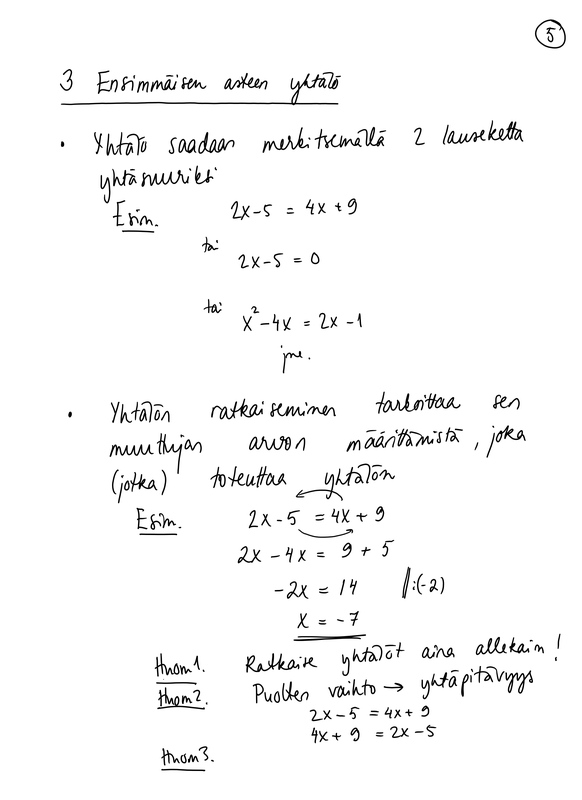 5
3 Ensimmäisen asteen yhtälö
• Yhtälö saadaan merkitsemällä 2 lauseketta
yhtäsuuriksi
Esim. 2x-5 = 4x+9
tai
2x-5 = 0
tai
x²-4x = 2x-1
jne.
• Yhtälön ratkaiseminen tarkoittaa sen
muuttujan arvon määrittämistä, joka
(jotka) toteuttaa yhtälön
Esim. 2x-5 = 4x+9
2x-4x = 9+5
-2x = 14 ||:(-2)
x = -7
Huom1. Ratkaise yhtälöt aina allekain!
Huom2. Puolten vaihto → yhtäpitävyys
2x-5 = 4x+9
4x+9 = 2x-5
Huom3.